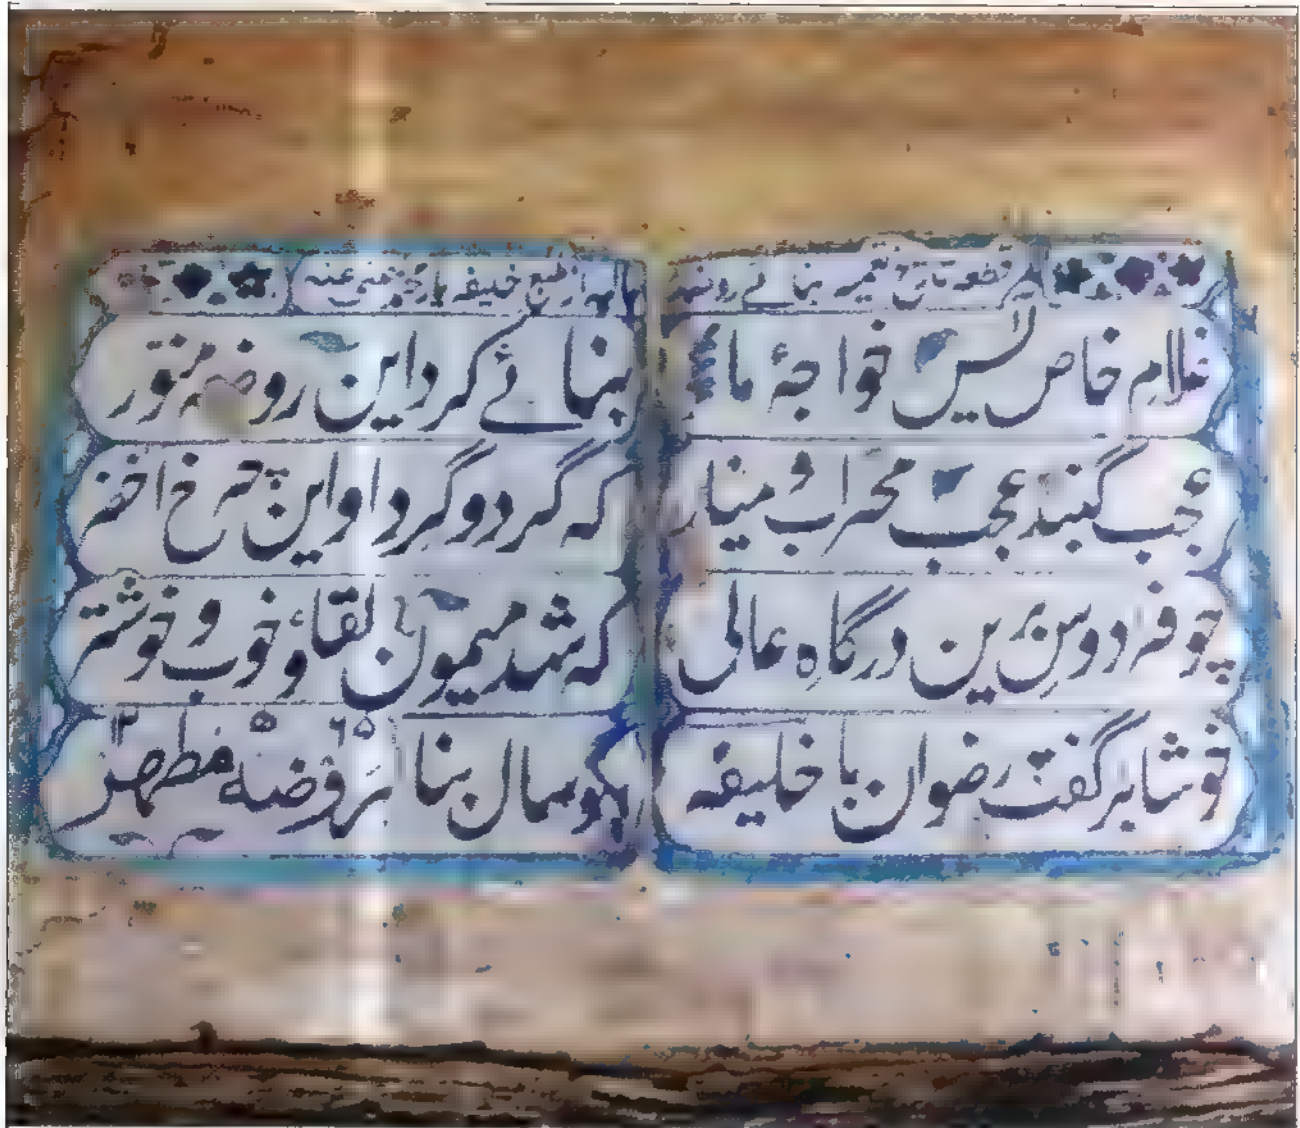 قطعہ تاریخ تعمیر بنائے روضہ از طبع خلیفہ یار محمد عفی عنہ
غلام خاص یٰس خواجۂ ما بنائے کرد این روضہ منور
عجب گنبد عجب محراب و مینار کہ گردد گرد او این چرخ اخضر
چو فردوس برین درگاہ عالی کہ شد میمون لقا و خوب و خوشتر
خوشا بر گفت رضوان با خلیفہ بگو سال بنا بر روضہ مطہر
۱۲ ۵ ۶۵